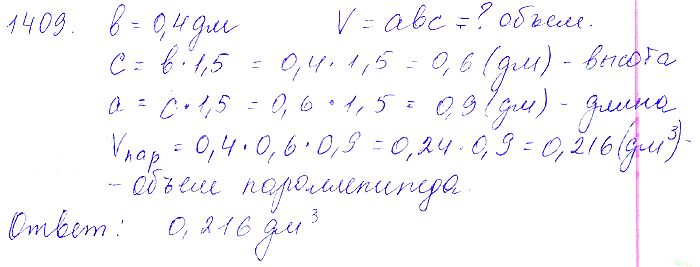 1409. b = 0,4 дм V = abc = ? объем.
c = b · 1,5 = 0,4 · 1,5 = 0,6 (дм) - высота
a = c · 1,5 = 0,6 · 1,5 = 0,9 (дм) - длина
Vпар = 0,4 · 0,6 · 0,9 = 0,24 · 0,9 = 0,216 (дм³) -
- объем
Ответ: 0,216 дм³